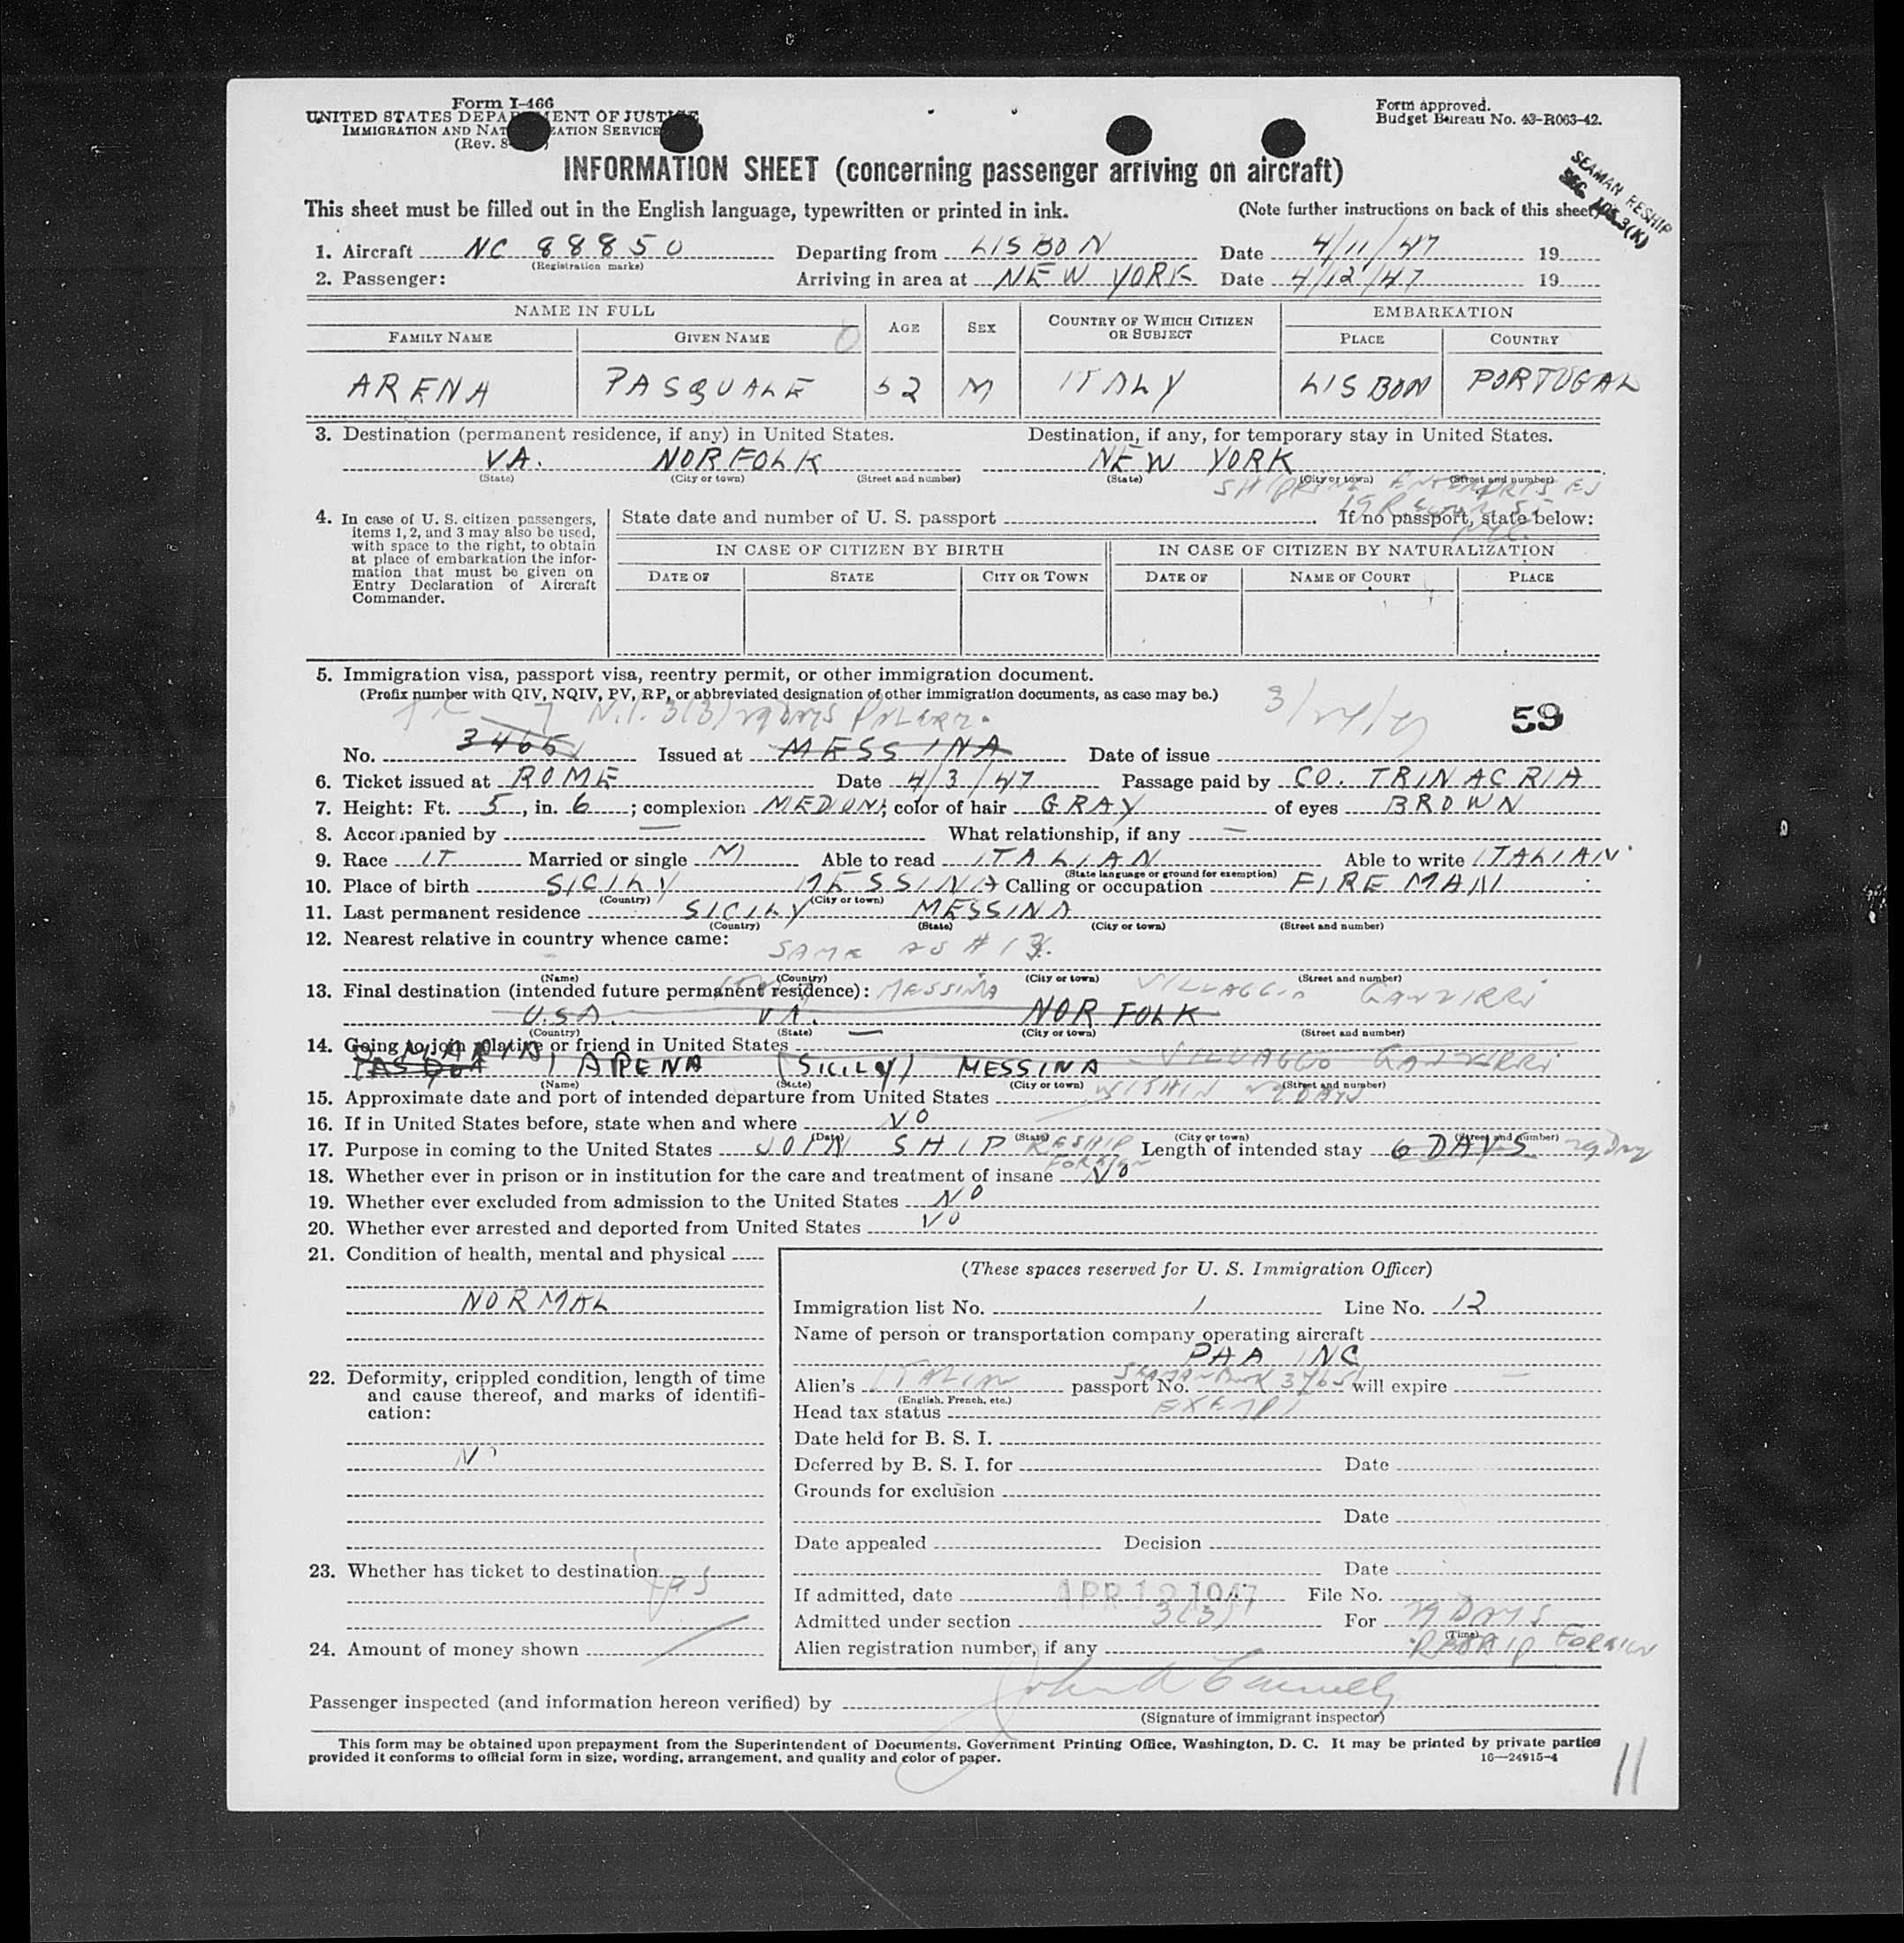 Form I-466
UNITED STATES DEPARTMENT OF JUSTICE
IMMIGRATION AND NATURALIZATION SERVICE
(Rev. 8-
Form approved.
Budget Bureau No. 43-R063-42.
INFORMATION SHEET (concerning passenger arriving on aircraft)
SEAMAN RESHIP
SEC 105.3(K)
This sheet must be filled out in the English language, typewritten or printed in ink. (Note further instructions on back of this sheet)
1. Aircraft NC 88850 Departing from LISBON Date 4/11/47 19
(Registration marks)
2. Passenger: Arriving in area at NEW YORK Date 4/12/47 19
NAME IN FULL AGE SEX COUNTRY OF WHICH CITIZEN OR SUBJECT EMBARKATION
FAMILY NAME GIVEN NAME PLACE COUNTRY
ARENA PASQUALE 52 M ITALY LISBON PORTUGAL
3. Destination (permanent residence, if any) in United States. Destination, if any, for temporary stay in United States.
VA. NORFOLK NEW YORK
(State) (City or town) (Street and number) (State) (City or town) (Street and number)
SHIPPING ENTERPRISES
NYC.
4. In case of U. S. citizen passengers, items 1, 2, and 3 may also be used, with space to the right, to obtain at place of embarkation the information that must be given on Entry Declaration of Aircraft Commander.
State date and number of U. S. passport If no passport, state below:
IN CASE OF CITIZEN BY BIRTH IN CASE OF CITIZEN BY NATURALIZATION
DATE OF STATE CITY OR TOWN DATE OF NAME OF COURT PLACE
5. Immigration visa, passport visa, reentry permit, or other immigration document.
(Prefix number with QIV, NQIV, PV, RP, or abbreviated designation of other immigration documents, as case may be.)
N.I. 3(3) 29 DAYS PALERM. 59
No. 3465 Issued at MESSINA Date of issue
6. Ticket issued at ROME Date 4/3/47 Passage paid by CO. TRINACRIA
7. Height: Ft. 5, in. 6; complexion MEDIUM; color of hair GRAY of eyes BROWN
8. Accompanied by — What relationship, if any —
9. Race IT Married or single M Able to read ITALIAN Able to write ITALIAN
(State language or ground for exemption)
10. Place of birth SICILY MESSINA Calling or occupation FIREMAN
(Country) (City or town)
11. Last permanent residence SICILY MESSINA
(Country) (State) (City or town) (Street and number)
12. Nearest relative in country whence came:
SAME AS # 13.
(Name) (Country) (City or town) (Street and number)
13. Final destination (intended future permanent residence): MESSINA VILLAGGIO GANZIRRI
U.S.A. VA. NORFOLK
(Country) (State) (City or town) (Street and number)
14. Going to join relative or friend in United States —
ARENA (SICILY) MESSINA - VILLAGGIO GANZIRRI
(Name) (State) (City or town) (Street and number)
15. Approximate date and port of intended departure from United States WITHIN 29 DAYS
16. If in United States before, state when and where NO
(Date) (State) (City or town) (Street and number)
17. Purpose in coming to the United States JOIN SHIP RESHIP FOREIGN Length of intended stay 6 DAYS 29 Days
18. Whether ever in prison or in institution for the care and treatment of insane NO
19. Whether ever excluded from admission to the United States NO
20. Whether ever arrested and deported from United States NO
21. Condition of health, mental and physical
NORMAL
22. Deformity, crippled condition, length of time and cause thereof, and marks of identification:
NO
23. Whether has ticket to destination
yes
24. Amount of money shown
(These spaces reserved for U. S. Immigration Officer)
Immigration list No. 1 Line No. 12
Name of person or transportation company operating aircraft
PAA INC
Alien's ITALIAN passport No. SEAMAN BOOK 3465 will expire —
(English, French, etc.)
Head tax status EXEMPT
Date held for B. S. I.
Deferred by B. S. I. for Date
Grounds for exclusion
Date
Date appealed Decision
Date
If admitted, date APR 12 1947 File No.
Admitted under section 3(3) For 29 DAYS
(Time)
Alien registration number, if any RESHIP FOREIGN
Passenger inspected (and information hereon verified) by
(Signature of immigrant inspector)
This form may be obtained upon prepayment from the Superintendent of Documents, Government Printing Office, Washington, D. C. It may be printed by private parties
provided it conforms to official form in size, wording, arrangement, and quality and color of paper. 16—24915-4
11